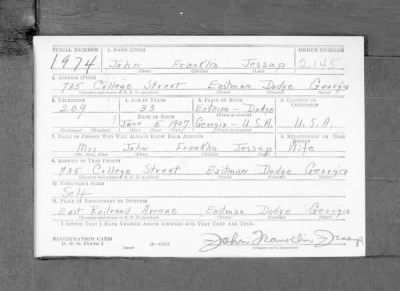 SERIAL NUMBER 1. NAME (Print) ORDER NUMBER
1974 John Franklin Jessup 2,145
(First) (Middle) (Last)
2. ADDRESS (Print)
735 College Street Eastman Dodge Georgia
(Number and street or R. F. D. number) (Town) (County) (State)
3. TELEPHONE 4. AGE IN YEARS 5. PLACE OF BIRTH 6. COUNTRY OF CITIZENSHIP
209 33 Eastman - Dodge
DATE OF BIRTH
June 5 1907 Georgia - U.S.A. U.S.A.
(Exchange) (Number) (Mo.) (Day) (Yr.) (State or country)
7. NAME OF PERSON WHO WILL ALWAYS KNOW YOUR ADDRESS 8. RELATIONSHIP OF THAT PERSON
Mrs John Franklin Jessup Wife
(Mr., Mrs., Miss) (First) (Middle) (Last)
9. ADDRESS OF THAT PERSON
735 College Street Eastman Dodge Georgia
(Number and street or R. F. D. number) (Town) (County) (State)
10. EMPLOYER'S NAME
Self
11. PLACE OF EMPLOYMENT OR BUSINESS
East Railroad Avenue Eastman Dodge Georgia
(Number and street or R. F. D. number) (Town) (County) (State)
I AFFIRM THAT I HAVE VERIFIED ABOVE ANSWERS AND THAT THEY ARE TRUE.
REGISTRATION CARD
D. S. S. Form 1 John Franklin Jessup